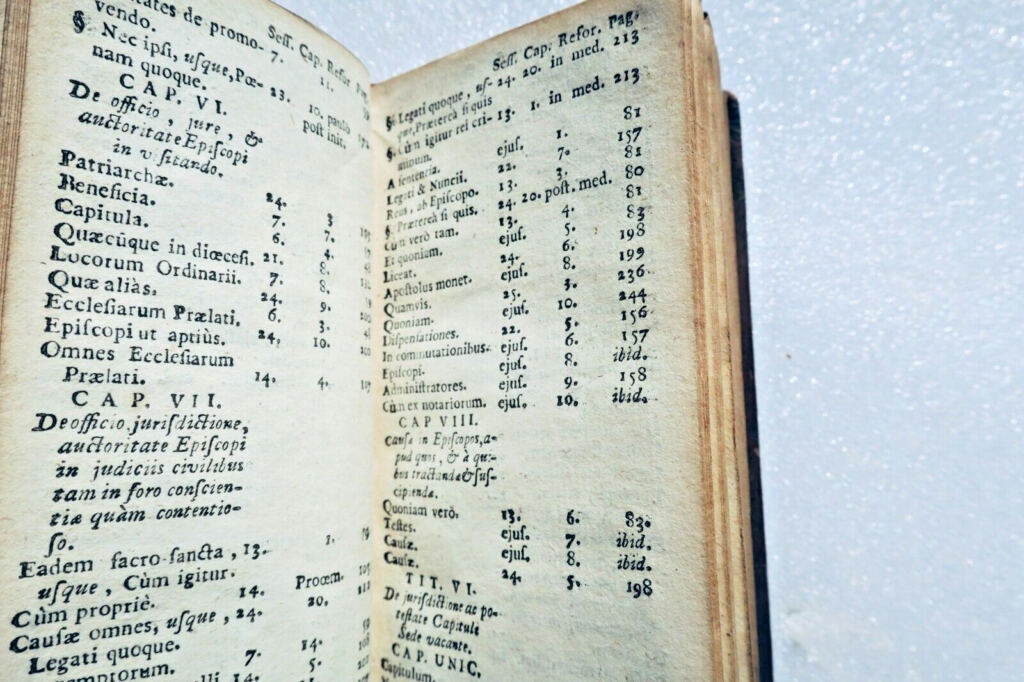 tates de promo-
vendo. 7. 11.
Seſſ. Cap. Refor. Pag.
§ Nec ipſi, uſque, Pœ- 23. 10. paulo
nam quoque. poſt init.
CAP. VI.
De officio, jure, &
auctoritate Epiſcopi
in viſitando.
Patriarchæ. 24. 3
Beneficia. 7. 7.
Capitula. 6. 4.
Quæcũque in diœceſi. 21. 8.
Locorum Ordinarii. 7. 8.
Quæ aliàs. 24. 9.
Eccleſiarum Prælati. 6. 3.
Epiſcopi ut aptiùs. 24. 10.
Omnes Eccleſiarum
Prælati. 14. 4. 107
CAP. VII.
De officio, jurisdictione,
auctoritate Epiſcopi
in judiciis civilibus
tam in foro conſcien-
tiæ quàm contentio-
ſo.
Eadem ſacro-ſancta, 13. 1.
uſque, Cùm igitur.
Cùm propriè. 14. Proœm.
Cauſæ omnes, uſque, 24. 20.
Legati quoque.
7. 14.
Seſſ. Cap. Refor. Pag.
§ Legati quoque, uſ- 24. 20. in med. 213
que, Prætereà ſi quis
§. Cùm igitur rei cri- 13. 1. in med. 213
minum.
A ſententia. ejuſ. 1. 81
Legati & Nuncii. 22. 7. 157
Reus, ab Epiſcopo. 13. 3. 81
§. Prætereà ſi quis. 24. 20. poſt. med. 80
Cùm verò tam. 13. 4. 81
Et quoniam. ejuſ. 5. 83
Liceat. 24. 6. 198
Apoſtolus monet. ejuſ. 8. 199
Quamvis. 25. 3. 236
Quoniam. ejuſ. 10. 244
Diſpenſationes. 22. 5. 156
In commutationibus. ejuſ. 6. 157
Epiſcopi. ejuſ. 8. ibid.
Adminiſtratores. ejuſ. 9. 158
Cùm ex notariorum. ejuſ. 10. ibid.
CAP VIII.
Cauſæ in Epiſcopos, a-
pud quos, & à qui-
bus tractandæ & ſuſ-
cipiendæ.
Quoniam verò. 13. 6. 83.
Teſtes. ejuſ. 7. ibid.
Cauſæ. ejuſ. 8. ibid.
Cauſæ. 24. 5. 198
TIT. VI.
De jurisdictione ac po-
teſtate Capituli
Sede vacante.
CAP. UNIC.
Capitulum.